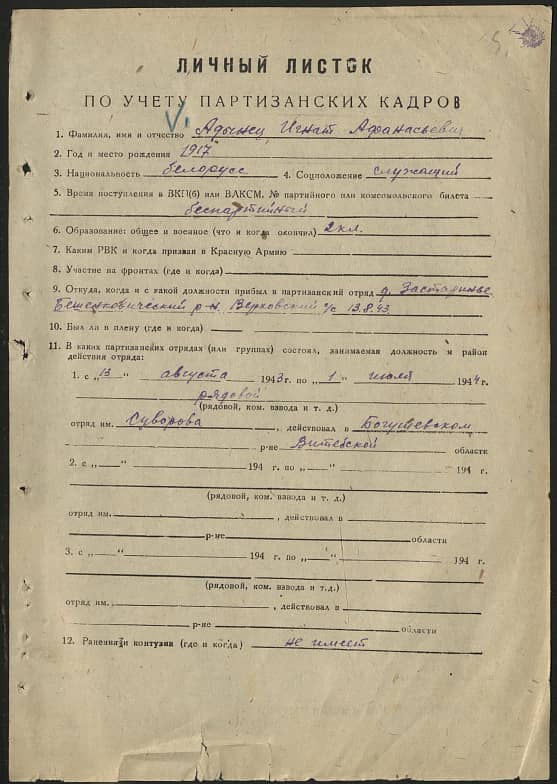 ЛИЧНЫЙ ЛИСТОК
ПО УЧЕТУ ПАРТИЗАНСКИХ КАДРОВ
1. Фамилия, имя и отчество Адынец Игнат Афанасьевич
2. Год и место рождения 1917
3. Национальность белорусс 4. Соцположение служащий
5. Время поступления в ВКП(б) или ВЛКСМ, № партийного или комсомольского билета
беспартийный
6. Образование: общее и военное (что и когда окончил) 2 кл.
7. Каким РВК и когда призван в Красную Армию
8. Участие на фронтах (где и когда)
9. Откуда, когда и с какой должности прибыл в партизанский отряд д.
Бешенковичский р-н. Верховский с/с 13.8.43.
10. Был ли в плену (где и когда)
11. В каких партизанских отрядах (или группах) состоял, занимаемая должность и район
действия отряда:
1. с „13 “ августа 1943г. по „1 “ июля 1944г.
рядовой
(рядовой, ком. взвода и т. д.)
отряд им. Суворова , действовал в Богушевском
р-не Витебской области
2. с „ “ 194 г. по „ “ 194 г.
(рядовой, ком. взвода и т. д.)
отряд им. , действовал в
р-не области
3. с „ “ 194 г. по „ “ 194 г.
(рядовой, ком. взвода и т.д.)
отряд им. , действовал в
р-не области
12. Ранения и контузии (где и когда) не имеет